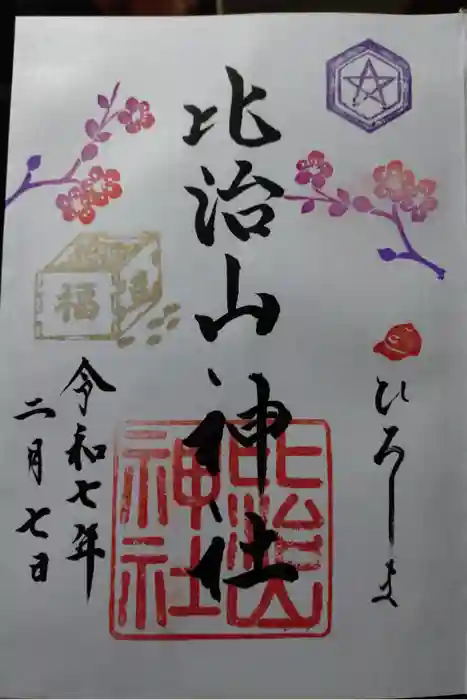 ひろしま
比治山神社
比治山神社
福
令和七年
二月七日